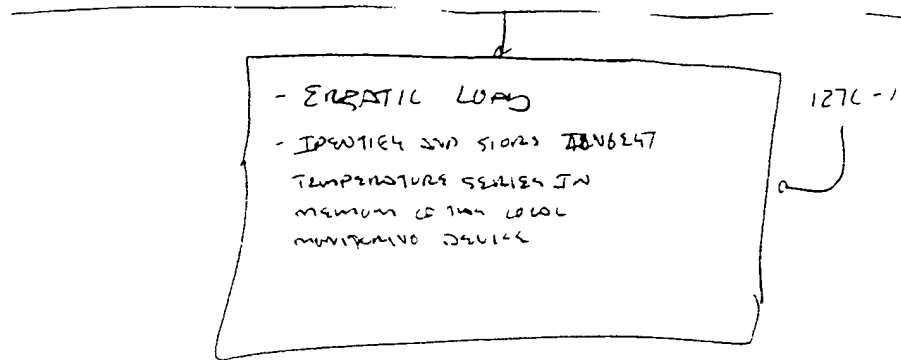 - ERRATIC LOAD
- IDENTIFY AND STORE AMBIENT
TEMPERATURE SERIES IN
MEMORY OF THE LOCAL
MONITORING DEVICE
127C-1